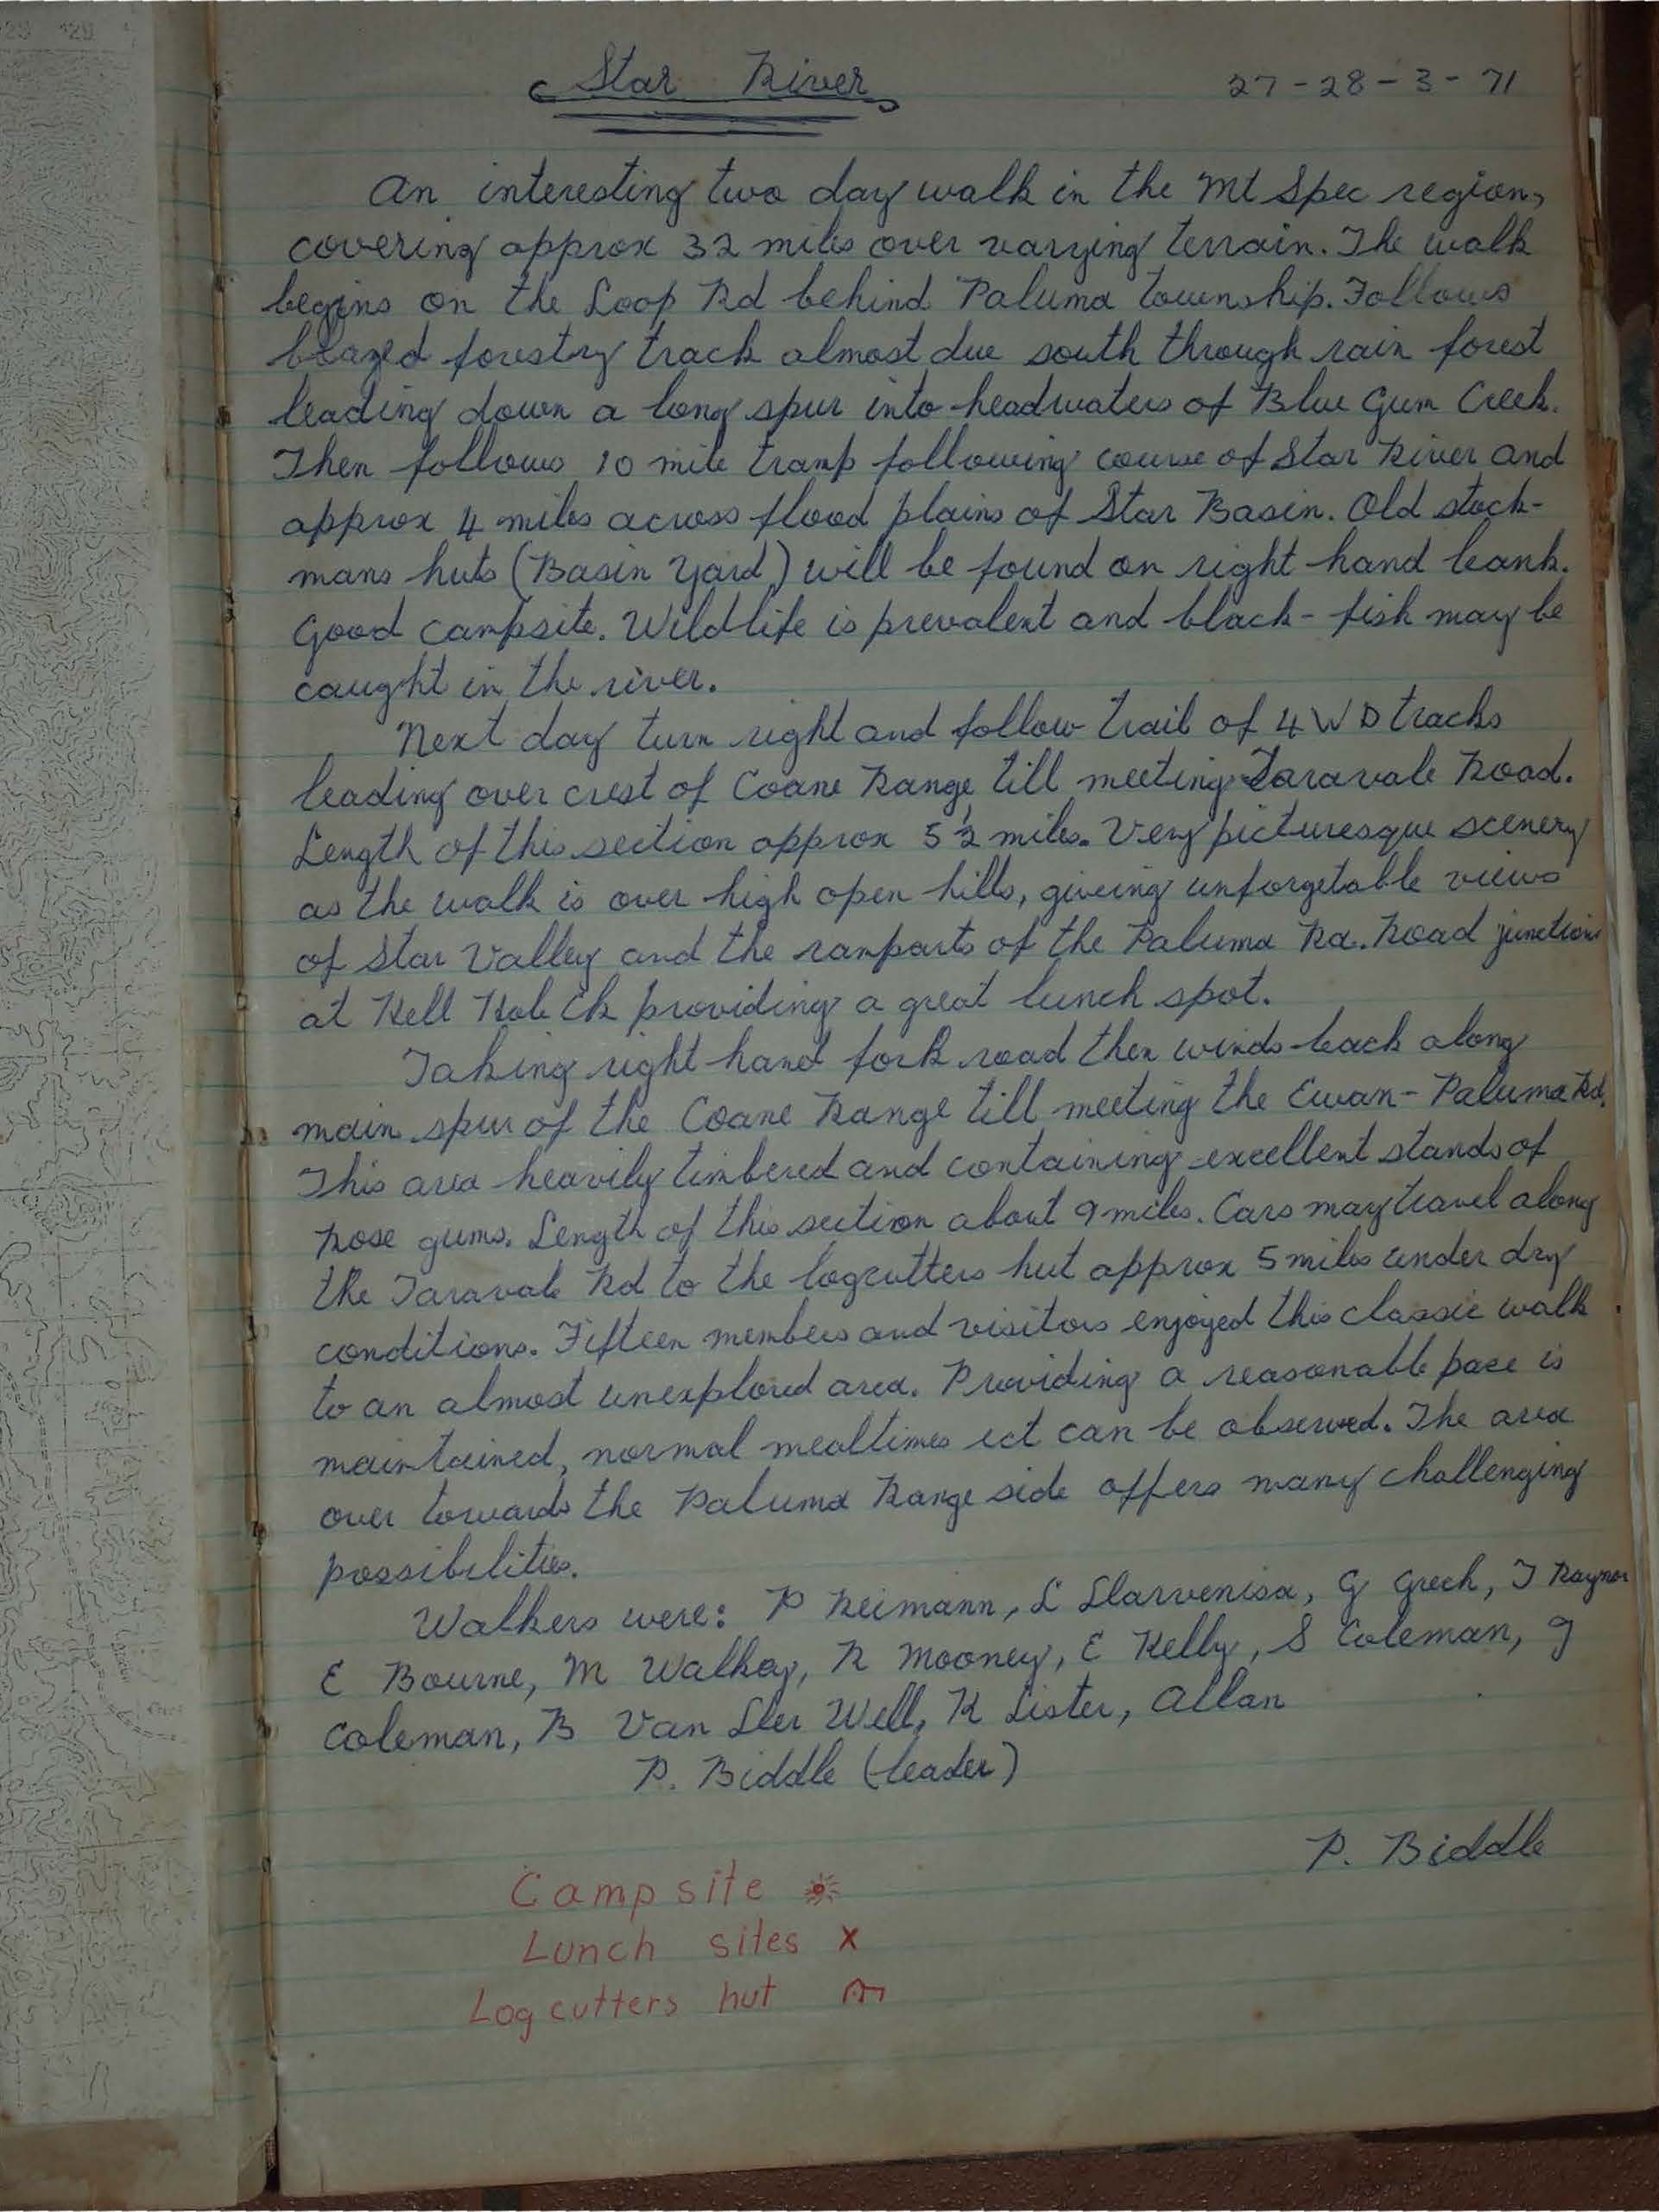 Star River 27-28-3-71
An interesting two day walk in the Mt Spec region,
covering approx 32 miles over varying terrain. The walk
begins on the Loop Rd behind Paluma township. Follows
blazed forestry track almost due south through rain forest
leading down a long spur into headwaters of Blue Gum Creek.
Then follows 10 mile tramp following course of Star River and
approx 4 miles across flood plains of Star Basin. Old stock-
mans huts (Basin Yard) will be found on right hand bank.
Good campsite. Wildlife is prevalent and black-fish may be
caught in the river.
Next day turn right and follow trail of 4WD tracks
leading over crest of Coane Range till meeting Taravale Road.
Length of this section approx 5½ miles. Very picturesque scenery
as the walk is over high open hills, giveing unforgetable views
of Star Valley and the ramparts of the Paluma Ra. Road junction
at Hell Hole Ck providing a great lunch spot.
Taking right hand fork road then winds back along
main spur of the Coane Range till meeting the Ewan-Paluma Rd.
This area heavily timbered and containing excellent stands of
Rose gums. Length of this section about 9 miles. Cars may travel along
the Taravale Rd to the logcutters hut approx 5 miles under dry
conditions. Fifteen members and visitors enjoyed this classic walk
to an almost unexplored area. Providing a reasonable pace is
maintained, normal mealtimes ect can be observed. The area
over towards the Paluma Range side offers many challenging
possibilities.
Walkers were: P Reimann, L , G Grech, T Raynor
E Bourne, M Walkay, R Mooney, E Kelly, S Coleman, J
Coleman, B Van Der Well, K Lister, Allan
P. Biddle (leader)
P. Biddle
Camp site
Lunch sites x
Log cutters hut